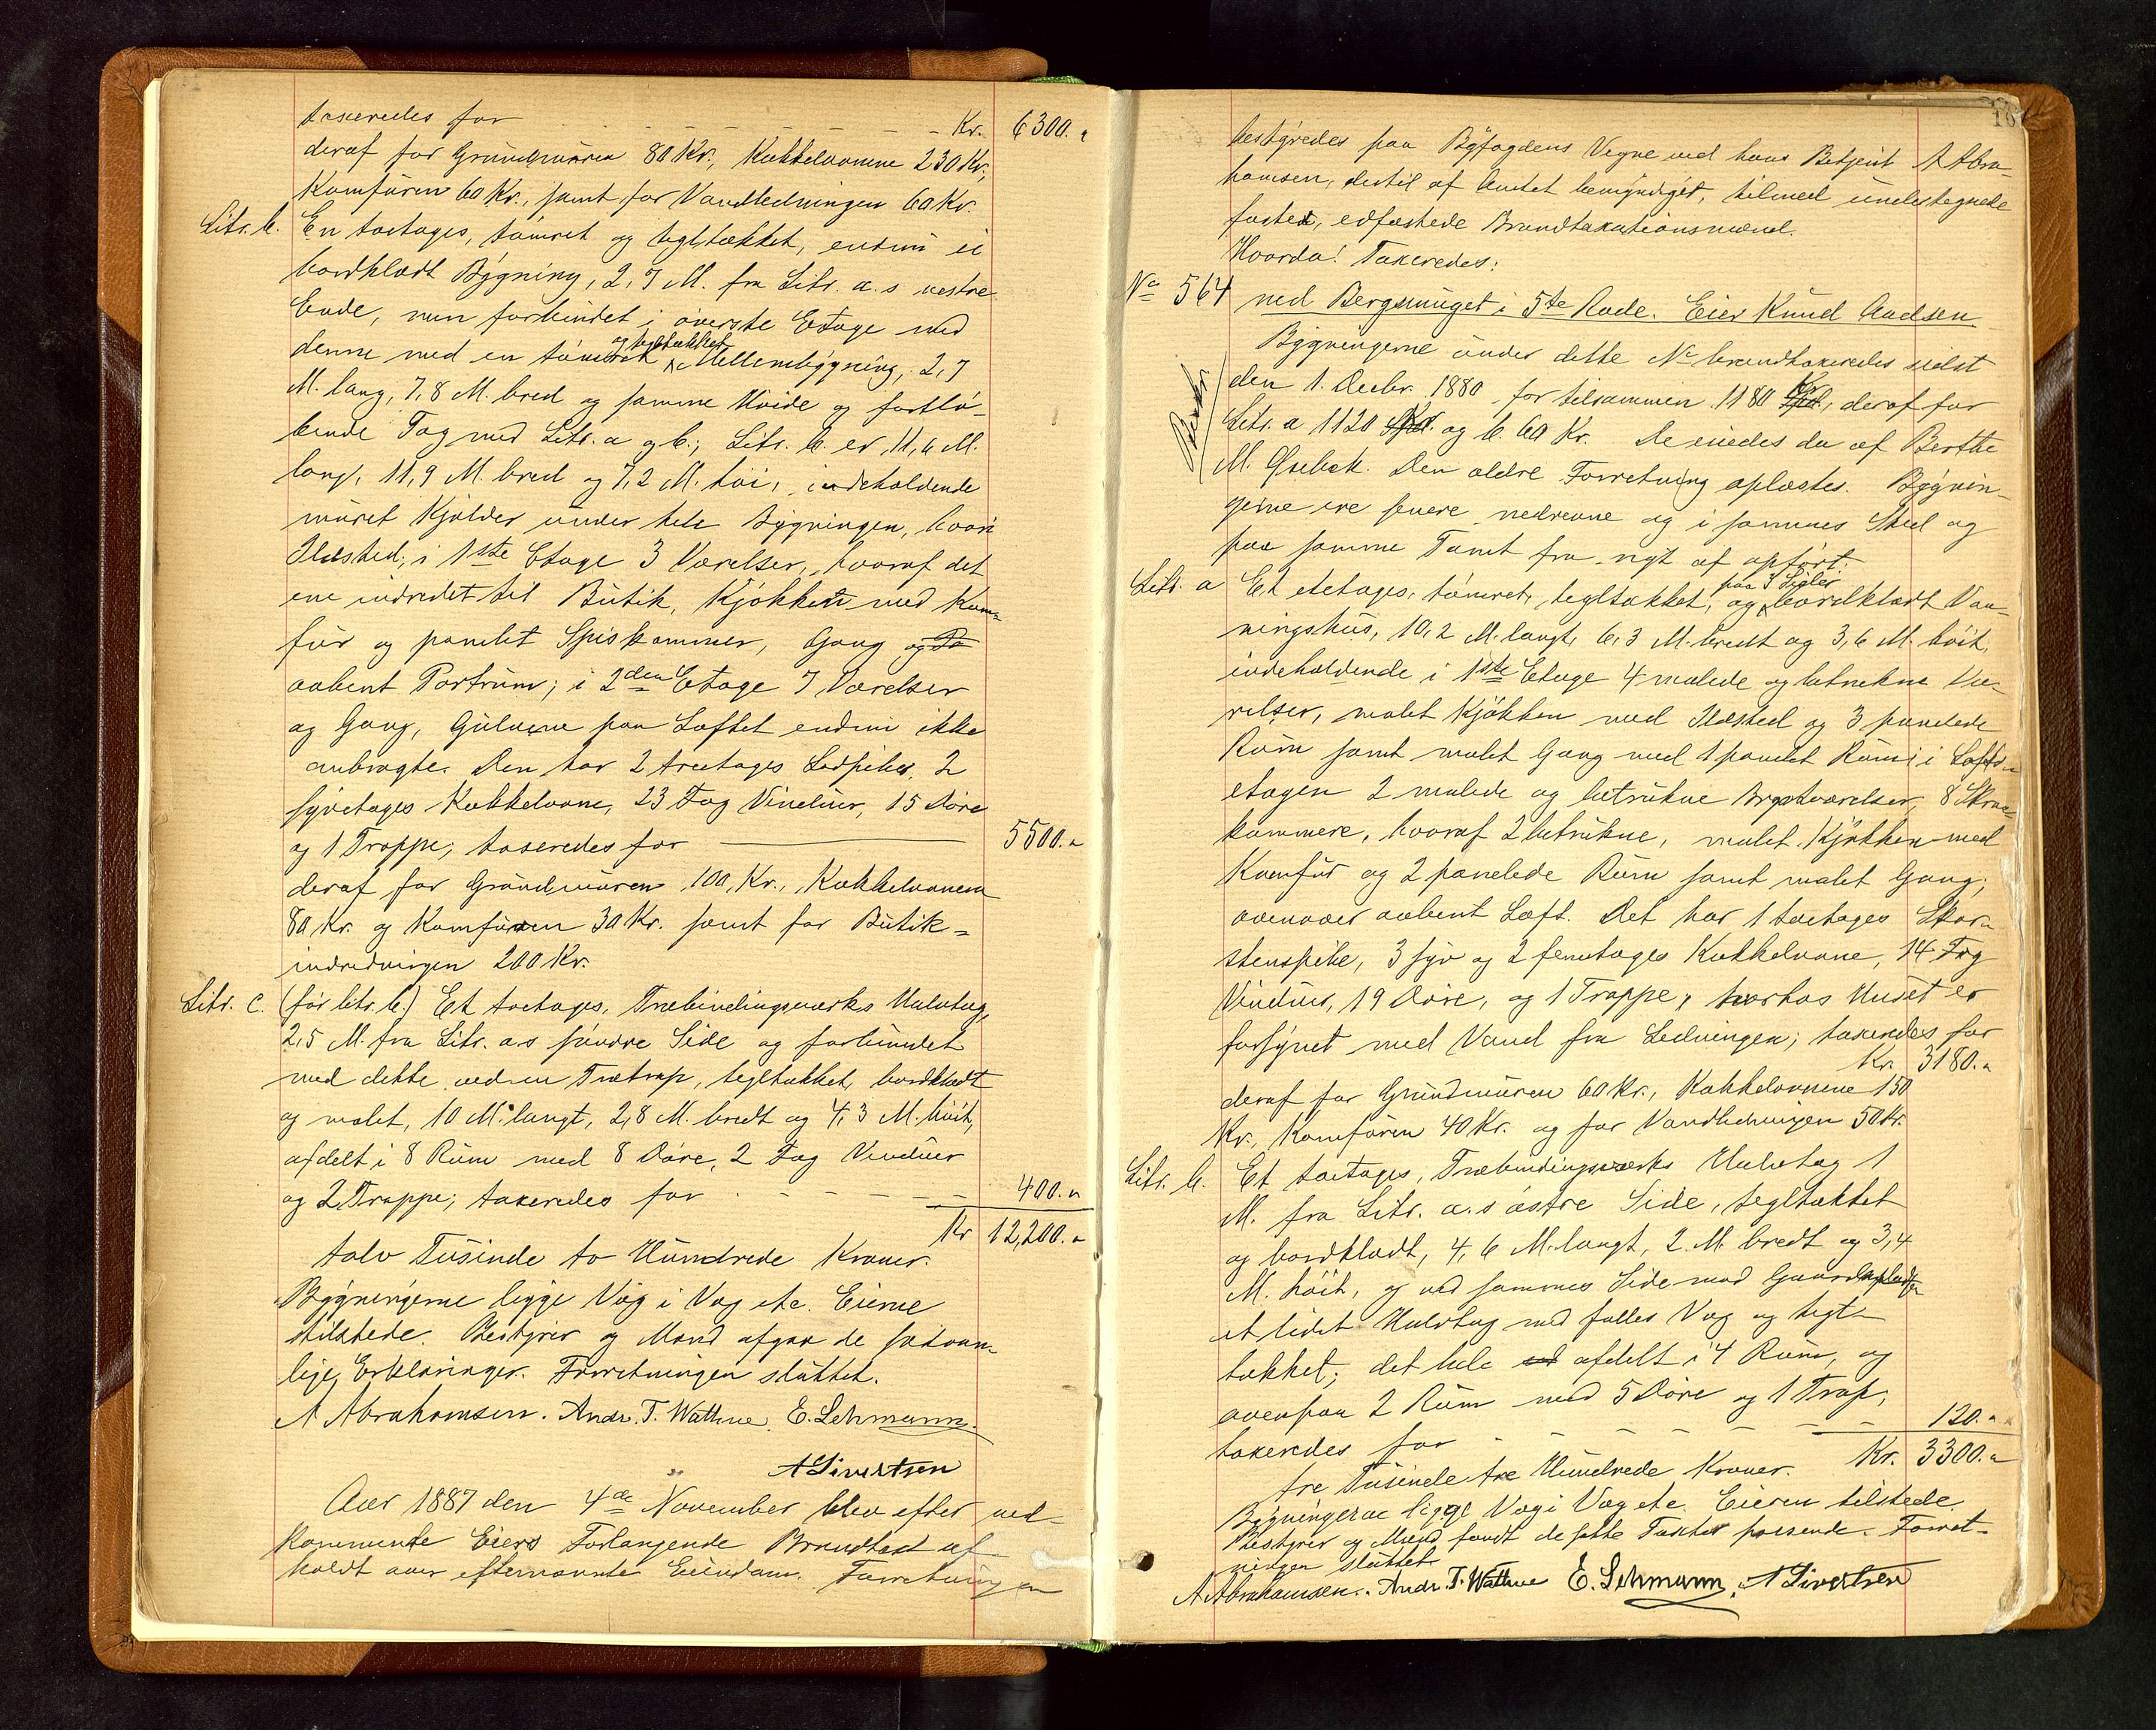 taxeredes for - - - - - - Kr. 6300. "
deraf for Grundmuren 80 Kr., Kakkelovnene 230 Kr.,
Komfuren 60 Kr., samt for Vandledningen 60 Kr.
Litr. b. En toetages, tømret og tegltækket, endnu ei
bordklædt Bygning, 2,7 M. fra Litr. a.s vestre
Ende, men forbindet i øverste Etage med
og tegltækket
denne med en tømret Mellembygning, 2,7
M. lang, 7,8 M. bred og samme Høide og fortlø-
bende Tag med Litr. a og b.; Litr. b. er 11,6 M.
lang, 11,9 M. bred og 7,2 M. høi, indeholdende
muret Kjælder under hele Bygningen, hvori
Ildsted; i 1ste Etage 3 Værelser, hvoraf det
ene indredet til Butik, Kjøkken med Kom-
fur og panelet Spiskammer, Gang og To
aabent Portrum; i 2den Etage 7 Værelser
og Gang, Gulvene paa Loftet endnu ikke
anbragte. Den har 2 treetages Lodpiber, 2
syvetages Kakkelovne, 23 Fag Vinduer, 15 Døre
og 1 Trappe; taxeredes for 5500. "
deraf for Grundmuren 100 Kr., Kakkelovnene
80 Kr. og Komfuren 30 Kr. samt for Butik-
indredningen 200 Kr.
Litr. c. (før litr. b.) Et toetages, Træbindingsværks Halvtag,
2,5 M. fra Litr. a.s søndre Side og forbundet
med dette ved en Trætrap, tegltækket, bordklædt
og malet, 10 M. langt, 2,8 M. bredt og 4,3 M. høit,
afdelt i 8 Rum med 8 Døre, 2 Fag Vinduer
og 2 Trappe; taxeredes for - - - - - 400. "
Kr 12,200. "
tolv Tusinde to Hundrede Kroner.
Bygningerne ligge Væg i Væg etc. Eierne
tilstede. Bestyrer og Mænd afgav de sædvan-
lige Erklæringer. Forretningen sluttet.
A Abrahamsen. Andr. T. Wathne. E. Lehmann.
A Sivertsen
Aar 1887 den 4de November blev efter ved-
kommende Eiers Forlangende Brandtaxt af-
holdt over efternævnte Eiendom. Forretningen
16
bestyredes paa Byfogdens Vegne ved hans Betjent A Abra-
hamsen, dertil af Amtet bemyndiget, tilmed undertegnede
faste, edfæstede Brandtaxationsmænd.
Hvorda! Taxeredes:
No 564 ved Bergsmuget i 5te Rode. Eier Knud Aadsen
Bygningerne under dette No brandtaxeredes sidst
den 1. Decbr. 1880 for tilsammen 1180 Kr, deraf for
Litr. a 1120 Kr. og b. 60 Kr. De eiedes da af Berthe
M. Den ældre Forretning oplæstes. Bygnin-
gerne ere senere nedrevne og i sammes Sted og
paa samme Tomt fra nyt af opført:
paa 3 Sider
Litr. a Et etetages, tømret, tegltækket, og bordklædt Vaa-
ningshus, 10,2 M. langt, 6,3 M. bredt og 3,6 M. høit,
indeholdende i 1ste Etage 4 malede og betrukne Væ-
relser, malet Kjøkken med Ildsted og 3 panelede
Rum samt malet Gang med 1 panelet Rum; i Lofts-
etagen 2 malede og betrukne Brystværelser, 8 Skraa-
kammere, hvoraf 2 betrukne, malet Kjøkken med
Komfur og 2 panelede Rum samt malet Gang;
ovenover aabent Loft. Det har 1 toetages Skor-
stenspibe, 3 syv og 2 femetages Kakkelovne, 14 Fag
Vinduer, 19 Døre, og 1 Trappe, hvorhos Huset er
forsynet med Vand fra Ledningen; taxeredes for
Kr. 3180. "
deraf for Grundmuren 60 Kr., Kakkelovnene 150
Kr., Komfuren 40 Kr. og for Vandledningen 50 Kr.
Litr. b. Et toetages, Træbindingsværks Halvtag 1
M. fra Litr. a.s østre Side, tegltækket
og bordklædt, 4,6 M. langt, 2 M. bredt og 3,4
M. høit, og ved sammes Side mod Gaardspladsen
et lidet Halvtag med fælles Væg og tegl-
tækket; det hele afdelt i 4 Rum, og
ovenpaa 2 Rum med 5 Døre og 1 Trap;
taxeredes for - - - - - - 120. "
tre Tusinde tre Hundrede Kroner. Kr. 3300. "
Bygningerne ligge Væg i Væg etc. Eieren tilstede.
Bestyrer og Mænd fandt de satte Taxter passende. Forret-
ningen sluttet.
A Abrahamsen. Andr. T. Wathne E. Lehmann. A Sivertsen